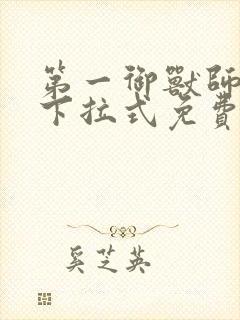 第一御獸師
下拉式免費
奚芝英